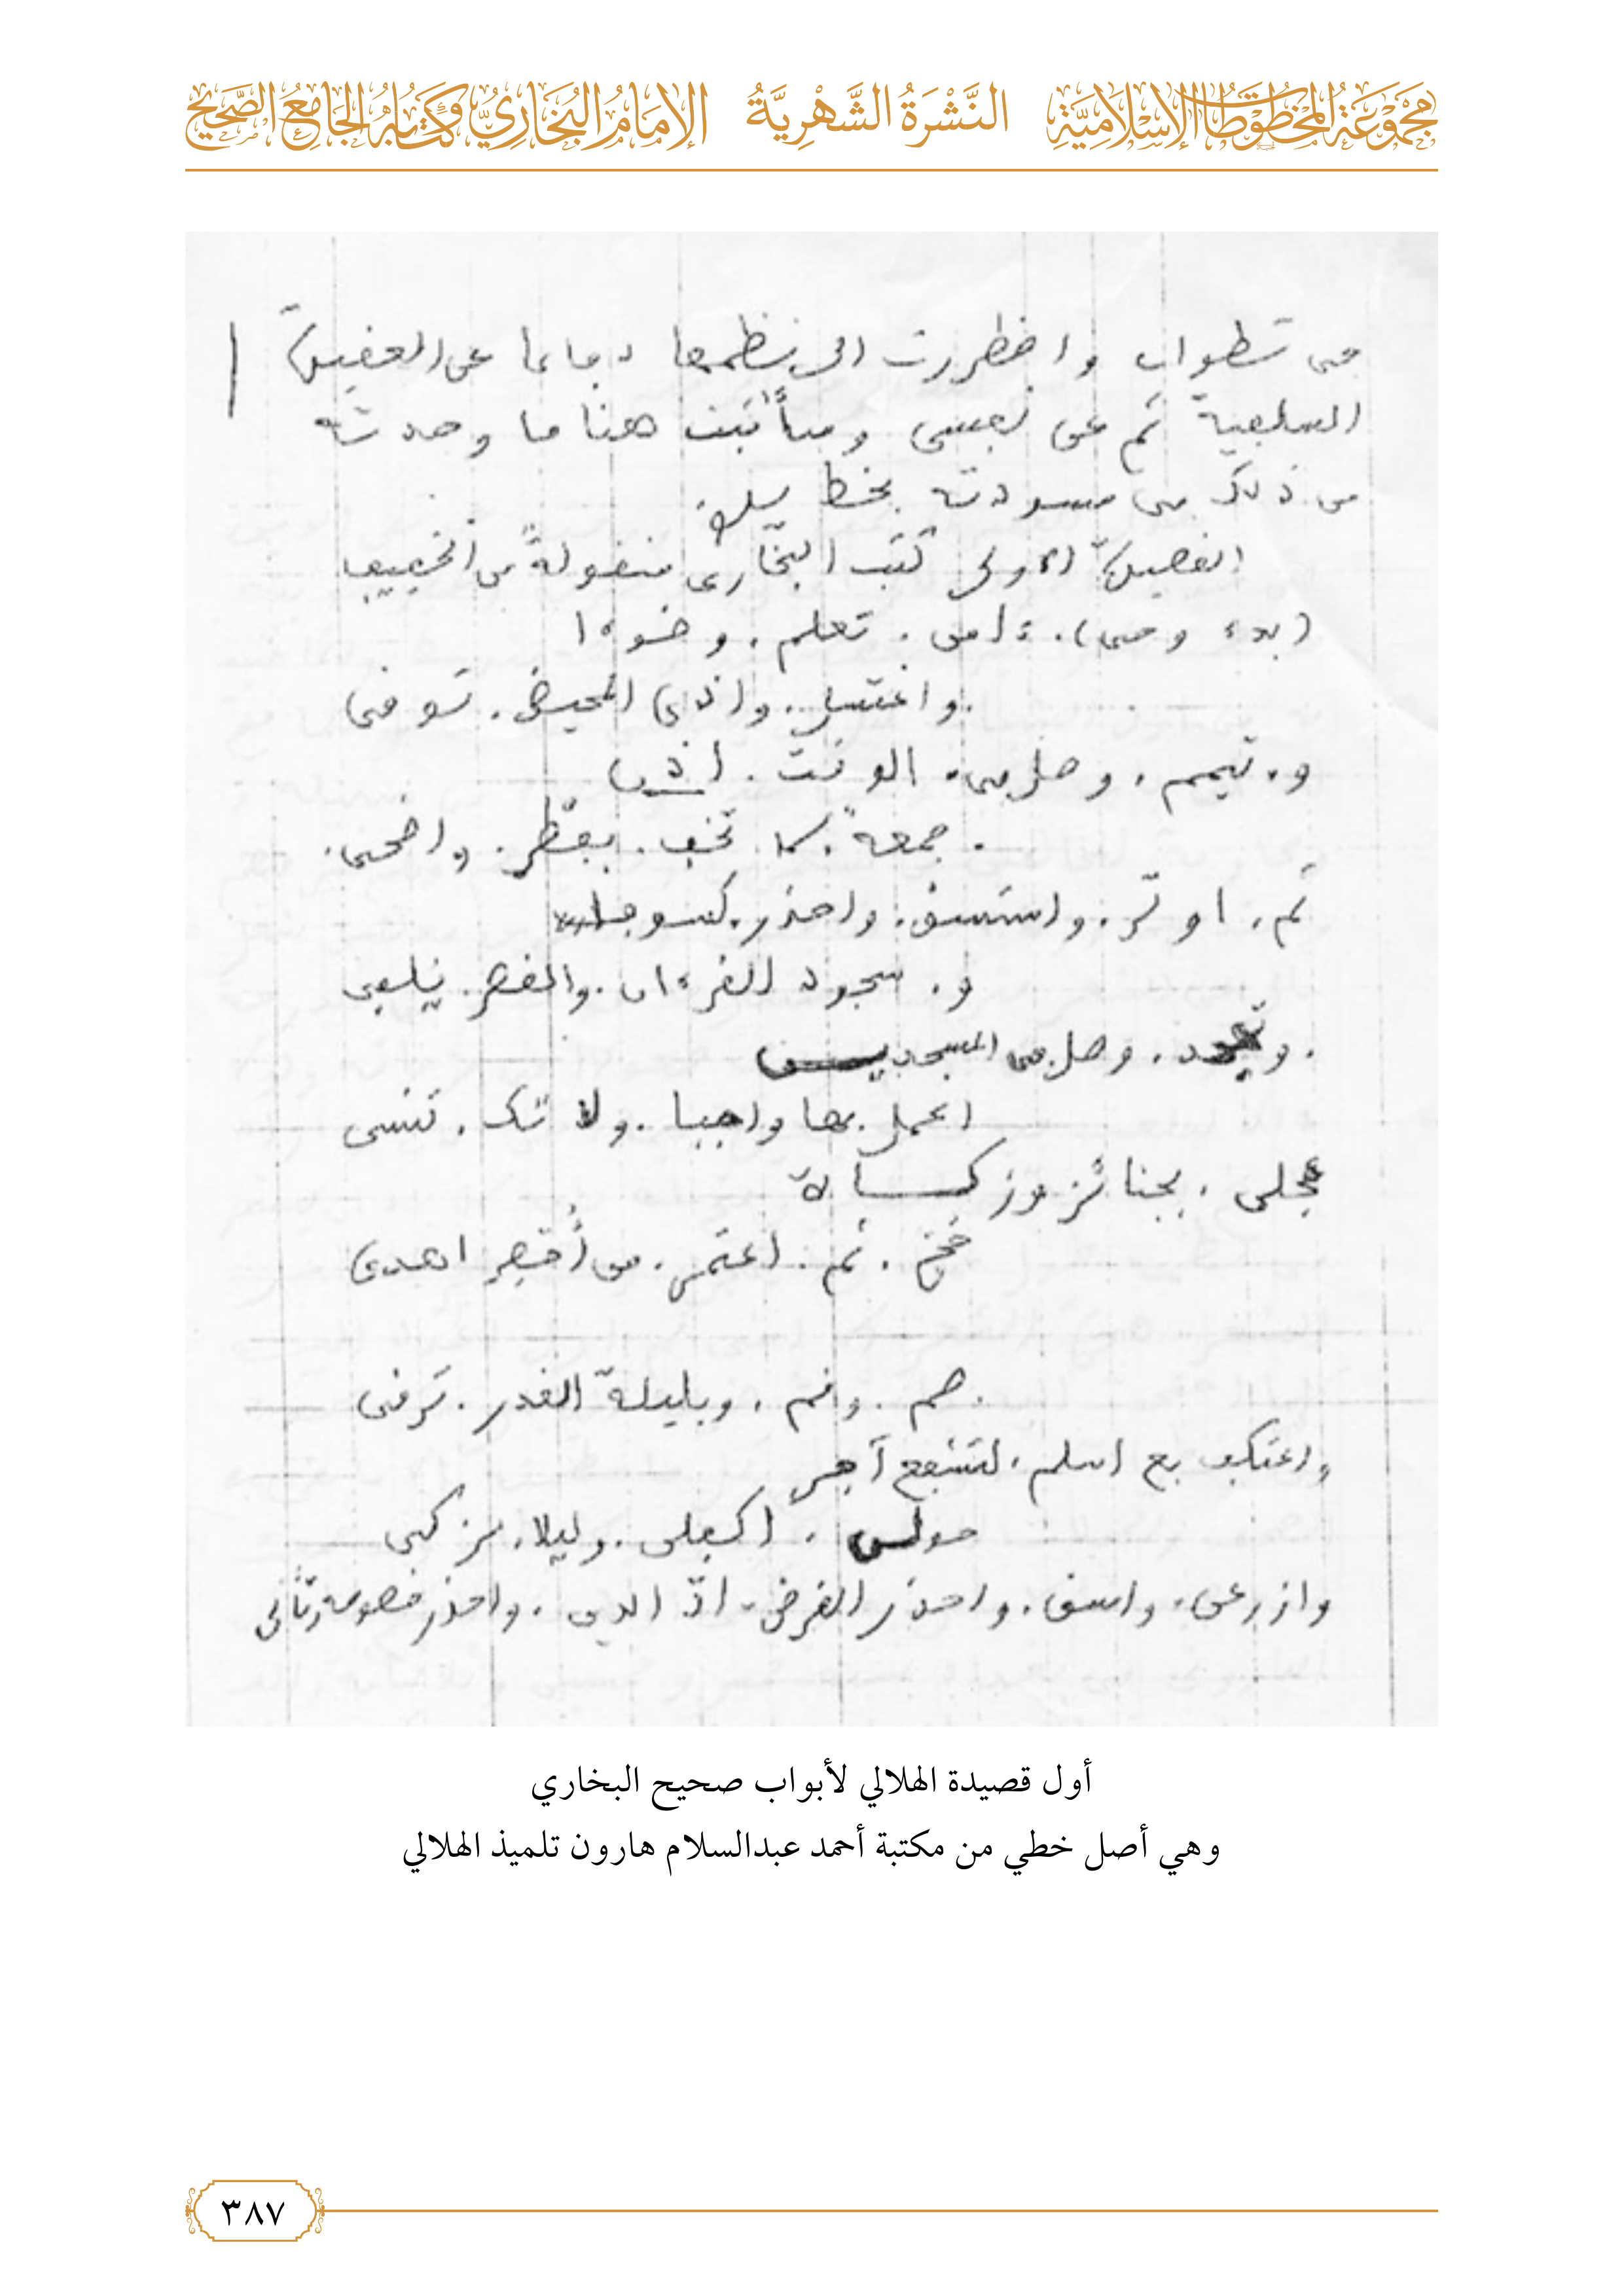 مَجْمُوعَةُ المَخْطُوطَاتِ الإِسْلَامِيَّةِ النَّشْرَةُ الشَّهْرِيَّةُ الإِمَامُ البُخَارِيُّ وَكِتَابُهُ الجَامِعُ الصَّحِيحُ
في تطوان واضطررت الى نظمها دفاعا عن العقيدة
السلفية ثم عن نفسي وسأثبت هنا ما وجدته
من ذلك في مسودته بخط
القصيدة الاولى كتب البخاري منقولة من الخفيف
(بدء وحي). ءامن. تعلم. وضوءا
.واغتسل. واذى المحيض. توقى
و. تيمم. وصل في. الوقت. اذن
. جمعة. كما تخف. بفطر. واضحى.
ثم. اوتر. واستسق. واحذر. كسوفا
و. سجود القرءان. والقصر.
. وتهجد. وصل في المسجد
اعمل بها واجبا. ولا تك. تنسى
. بجنائز وزكاة
ثم. اعتمر. من احصر اهدى
. صم. وقم. وبليلة القدر. ترقى
واعتكف بع اسلم. لتشفع آجر
. اكفلى. وكيلا. يزكى
وازرعن. واسق. واحذر القرض. اد الدين. واحذر خصومة
أول قصيدة الهلالي لأبواب صحيح البخاري
وهي أصل خطي من مكتبة أحمد عبدالسلام هارون تلميذ الهلالي
٣٨٧